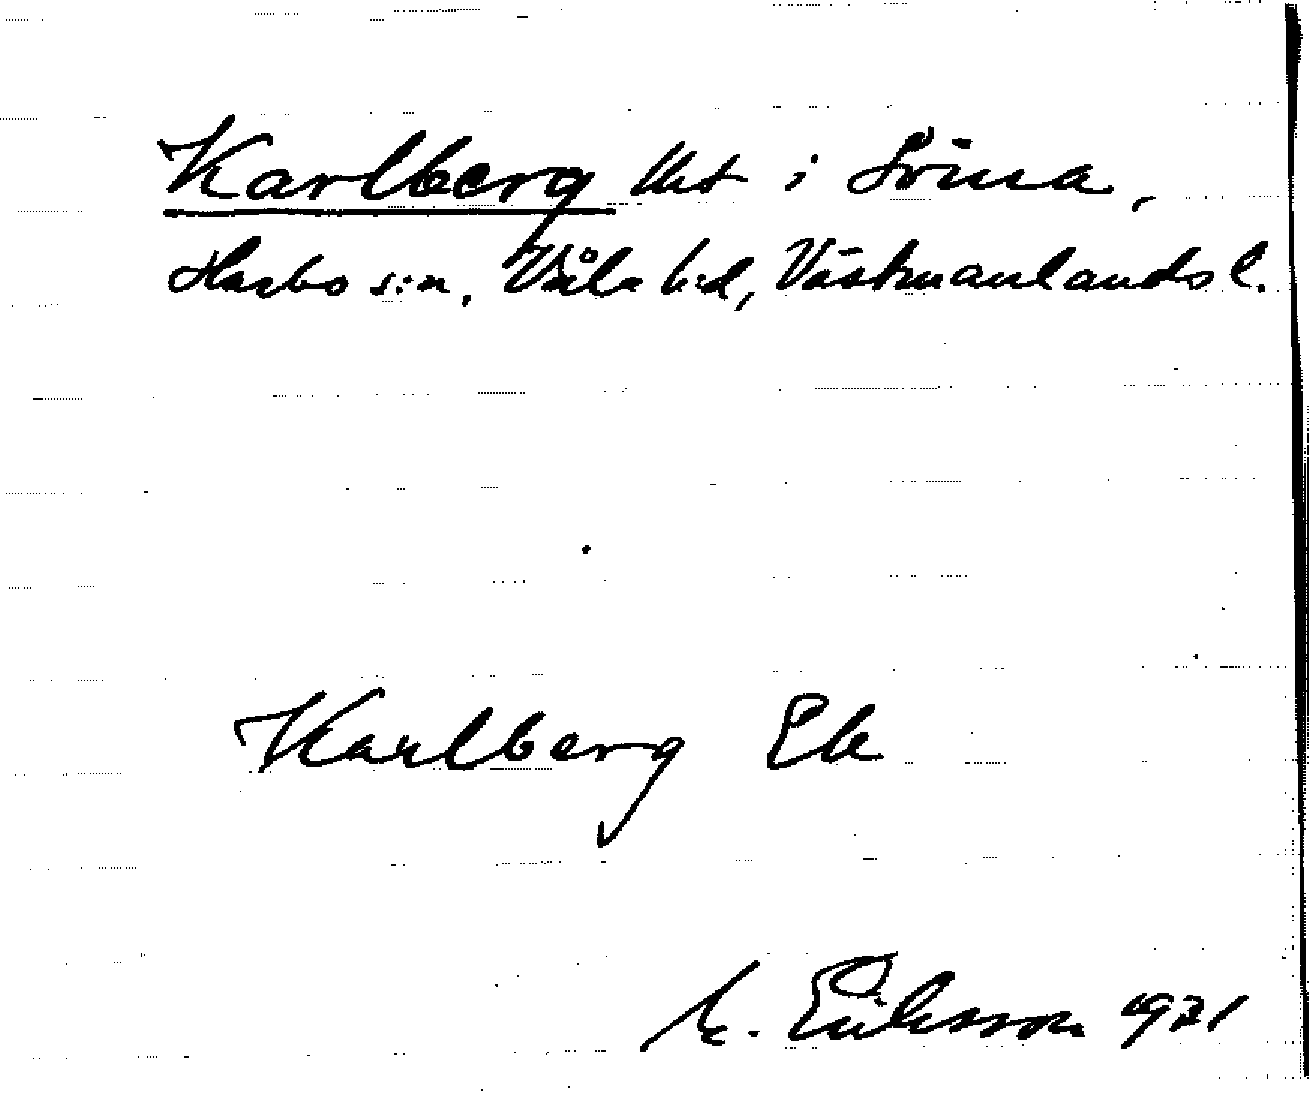 Karlberg lht i Svina,
Harbo s:n, Våla hd, Västmanlands l.
Karlberg Ek
M. Eriksson 1971